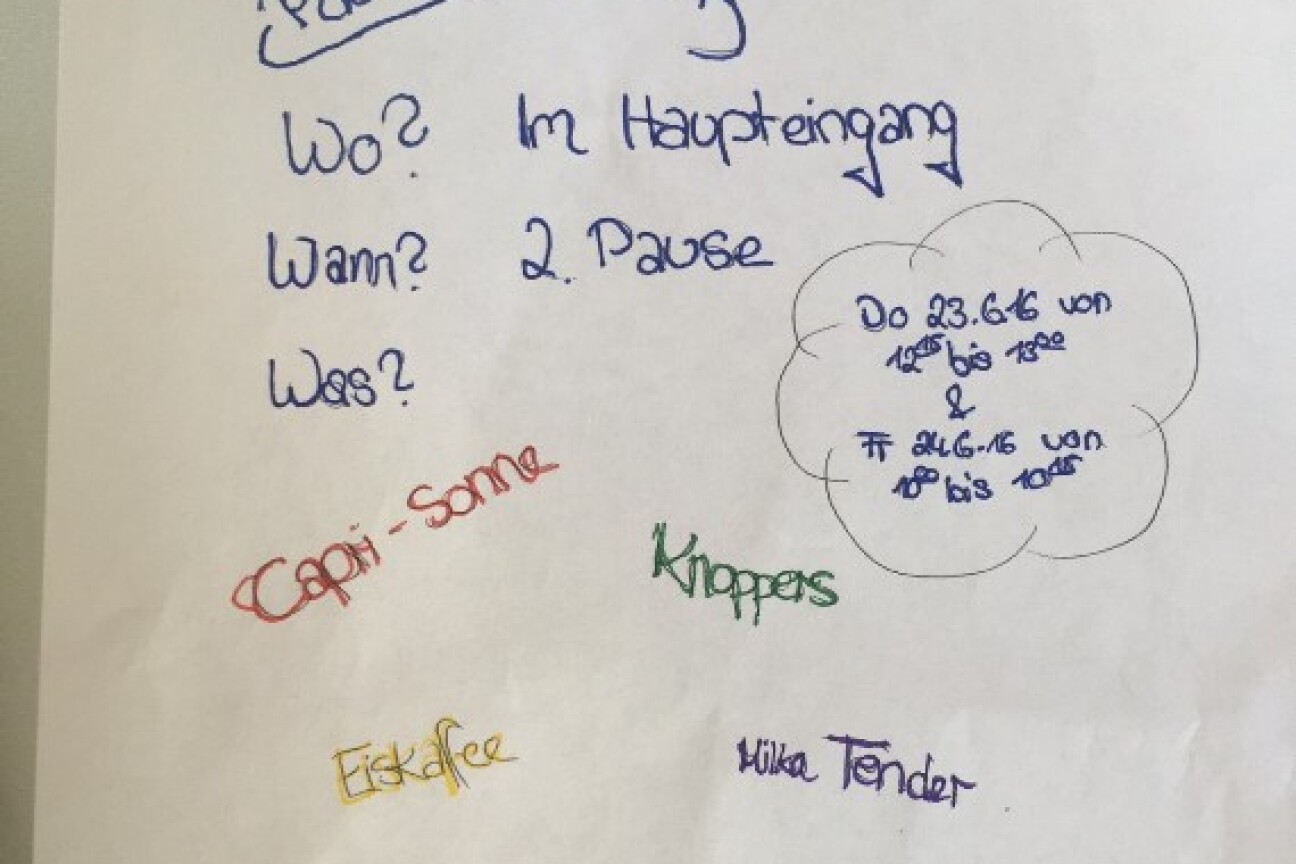 Wo? Im Haupteingang
Wann? 2. Pause
Was?
Do 23.6.16 von
12⁴⁵ bis 13⁰⁰
&
Fr 24.6.16 von
10⁰⁰ bis 10¹⁵
Capri-Sonne
Knoppers
Eiskaffee
Milka Tender